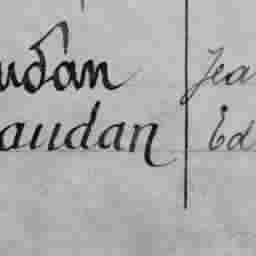 udan Jea
audan Ed